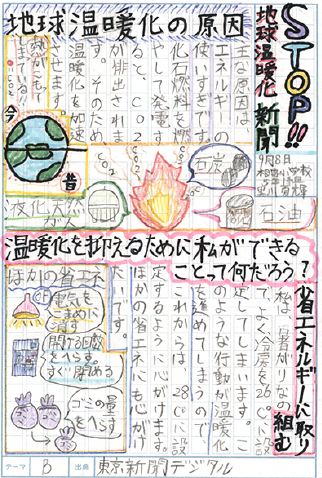 STOP!!
地球温暖化
新聞
9月8日
地球温暖化の原因
主な原因は、
エネルギーの
使いすぎです。
化石燃料を燃
やして発電す
ると、CO2
が排出されま
す。そのため、
温暖化を加速
させます。
熱がこもって
しまっている!!
CO2
今
昔
石炭
石油
液化天然
ガス
CO2
CO2
CO2
温暖化を抑えるために私ができる
ことって何だろう?
省エネルギーに取り
組む
私は、暑がりなの
で、よく冷房を26℃に設
定してしまいます。こ
のような行動が温暖化
を進めてしまうので
これからは、28℃に設
定するように心がけます。
ほかの省エネにも心がけ
たいです。
ほかの省エネ
電気を
こまめに
消す
開ける回数
をへらす。
すぐ閉める
ゴミの量
をへらす
テーマ
B
出典
東京新聞デジタル